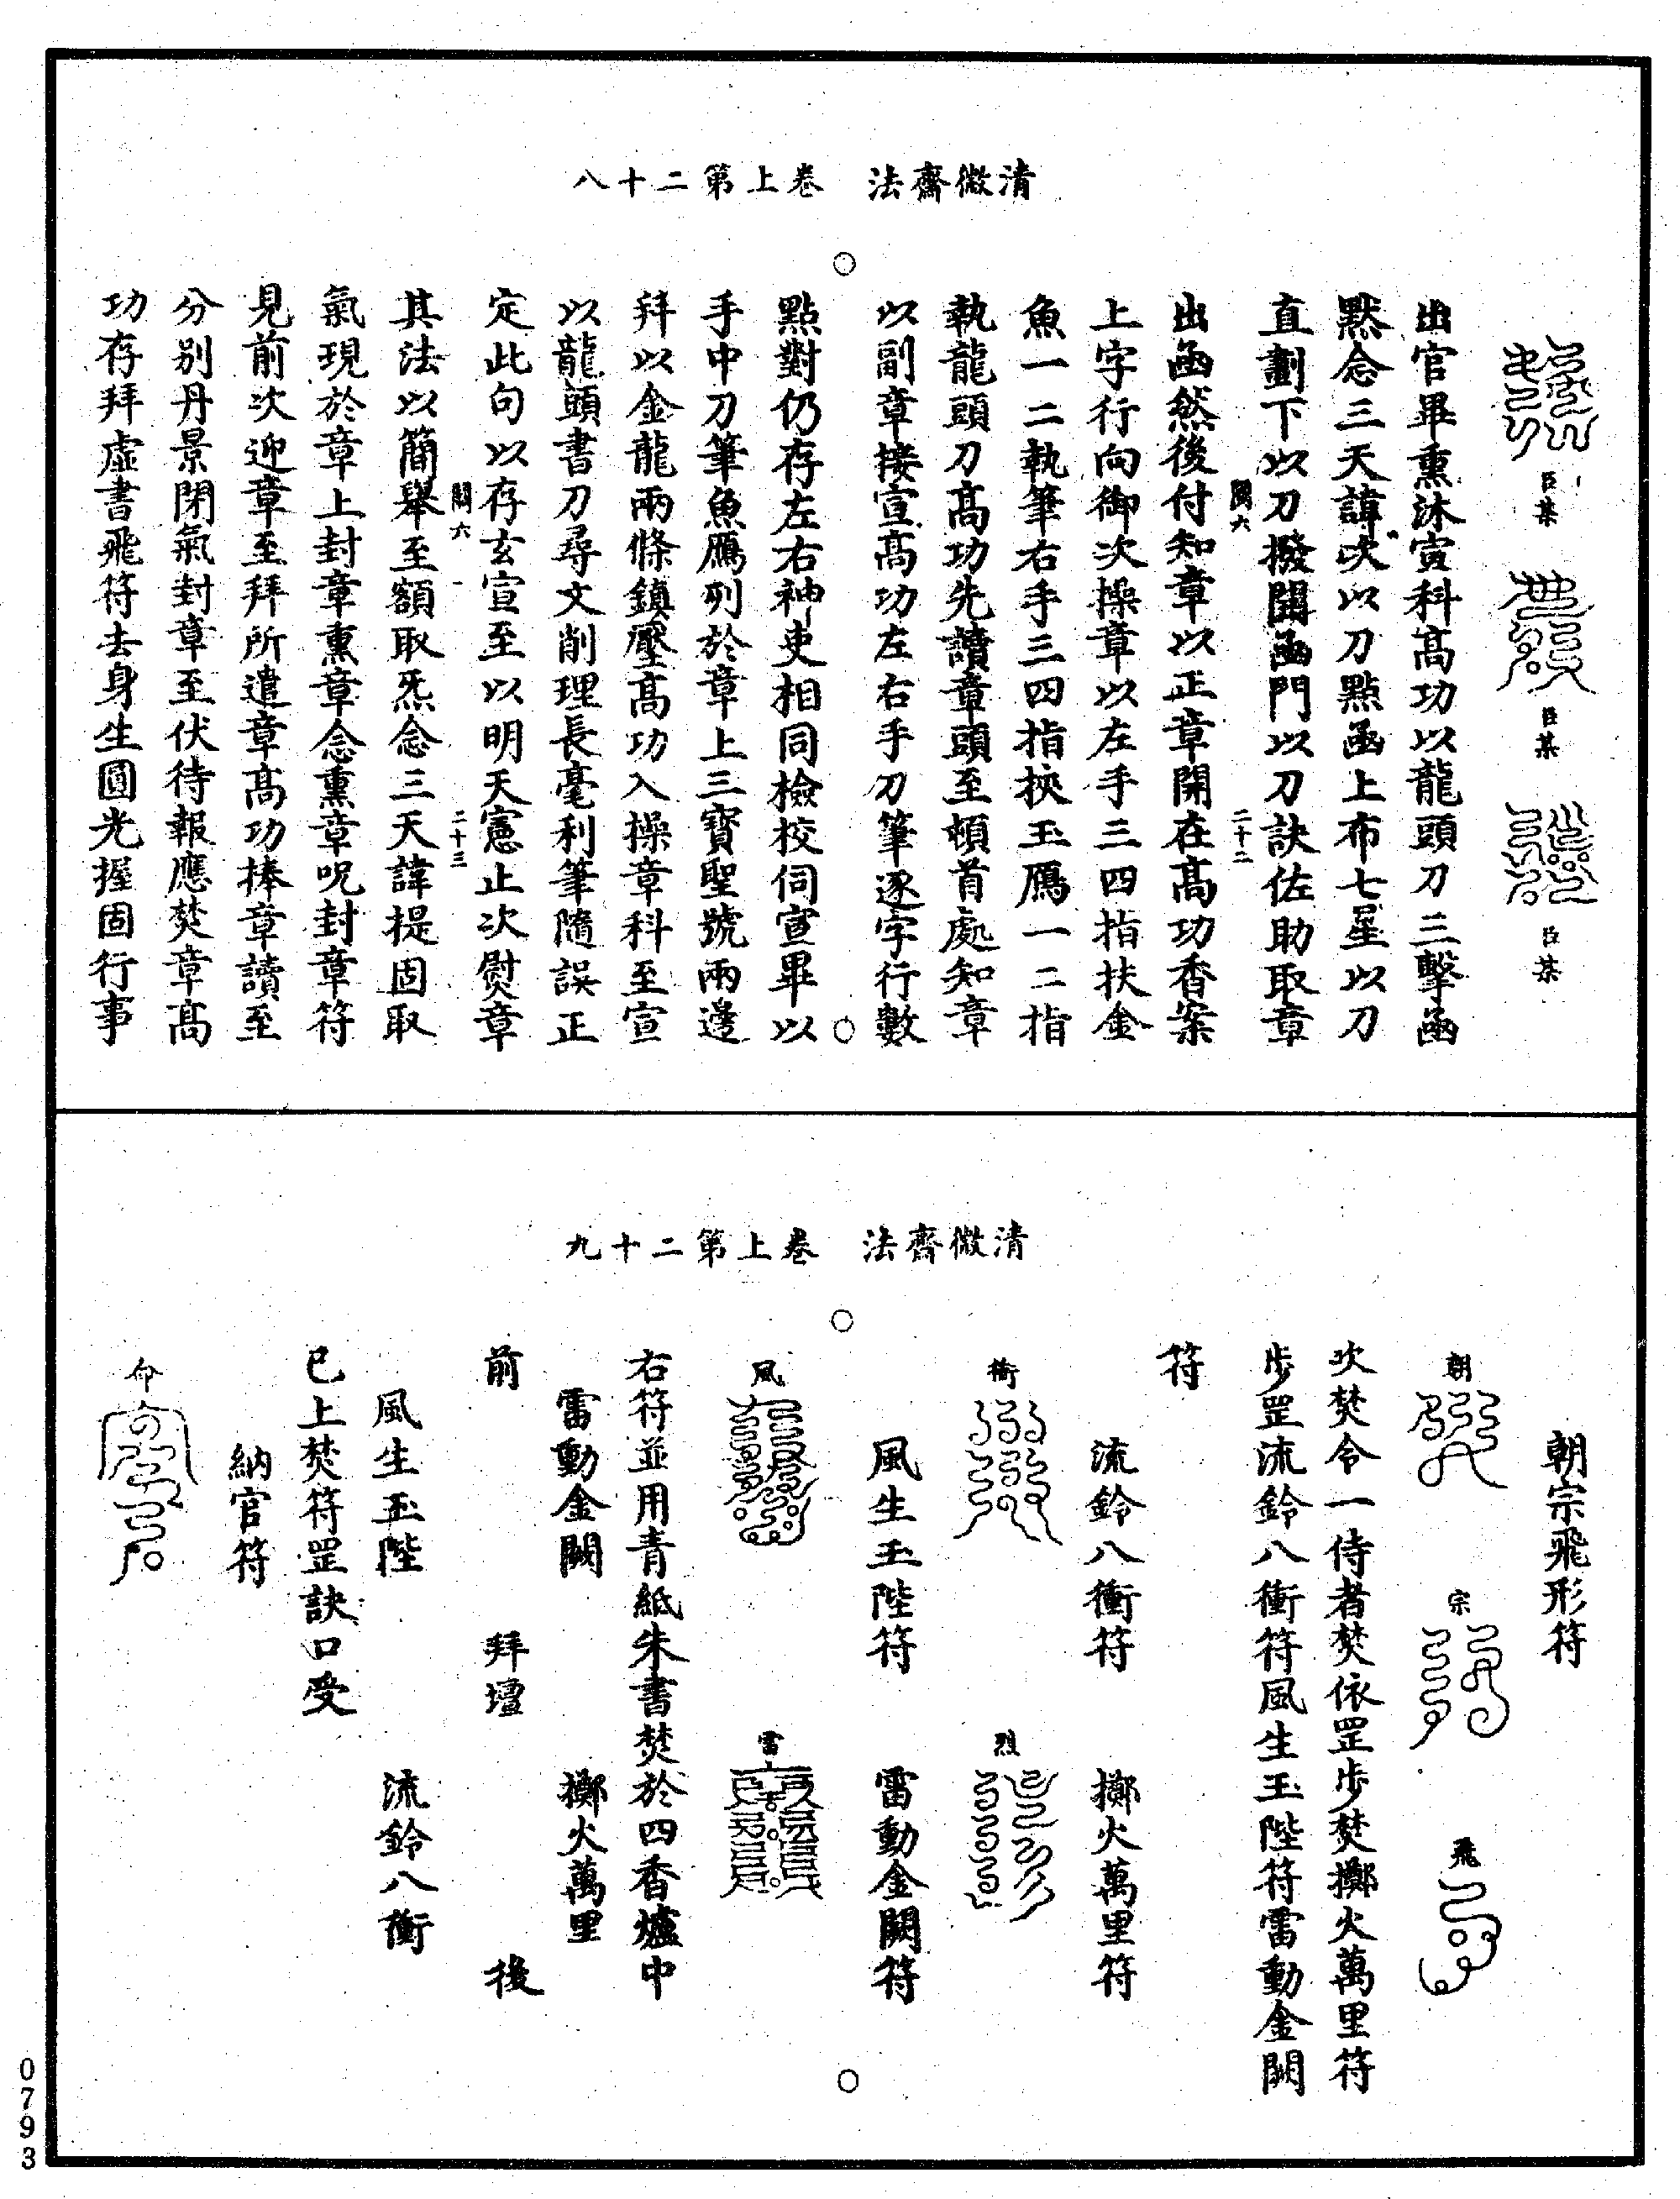 清微齋法　卷上第二十八
臣某　臣某　臣某
出官畢熏沐宣科高功以龍頭刀三擊函
黙念三天諱次以刀點函上布七星以刀
直劃下以刀撥開函門以刀訣佐助取章
闕六　二十二
出函然後付知章以正章開在高功香案
上字行向御次操章以左手三四指扶金
魚一二執筆右手三四指挾玉鴈一二指
執龍頭刀高功先讀章頭至頓首處知章
以副章接宣高功左右手刀筆逐字行數
點對仍存左右神吏相同檢校伺宣畢以
手中刀筆魚鴈列於章上三寶聖號兩邊
拜以金龍兩條鎮壓高功入操章科至宣
以龍頭書刀尋文削理長毫利筆隨誤正
定此句以存玄宣至以明天憲止次熨章
闕六　二十三
其法以簡舉至額取炁念三天諱提固取
氣現於章上封章熏章念熏章呪封章符
見前次迎章至拜所遣章高功捧章讀至
分別丹景閉氣封章至伏待報應焚章高
功存拜虛書飛符去身生圓光握固行事
清微齋法　卷上第二十九
朝宗飛形符
朝　宗　飛
次焚令一侍者焚依罡步焚擲火萬里符
步罡流鈴八衝符風生玉陛符雷動金闕
符
流鈴八衝符　擲火萬里符
衝　烈
風生玉陛符　雷動金闕符
風　雷
右符並用青紙朱書焚於四香爐中
雷動金闕　擲火萬里
前　拜壇　後
風生玉陛　流鈴八衝
已上焚符罡訣口受
納官符
命
0793